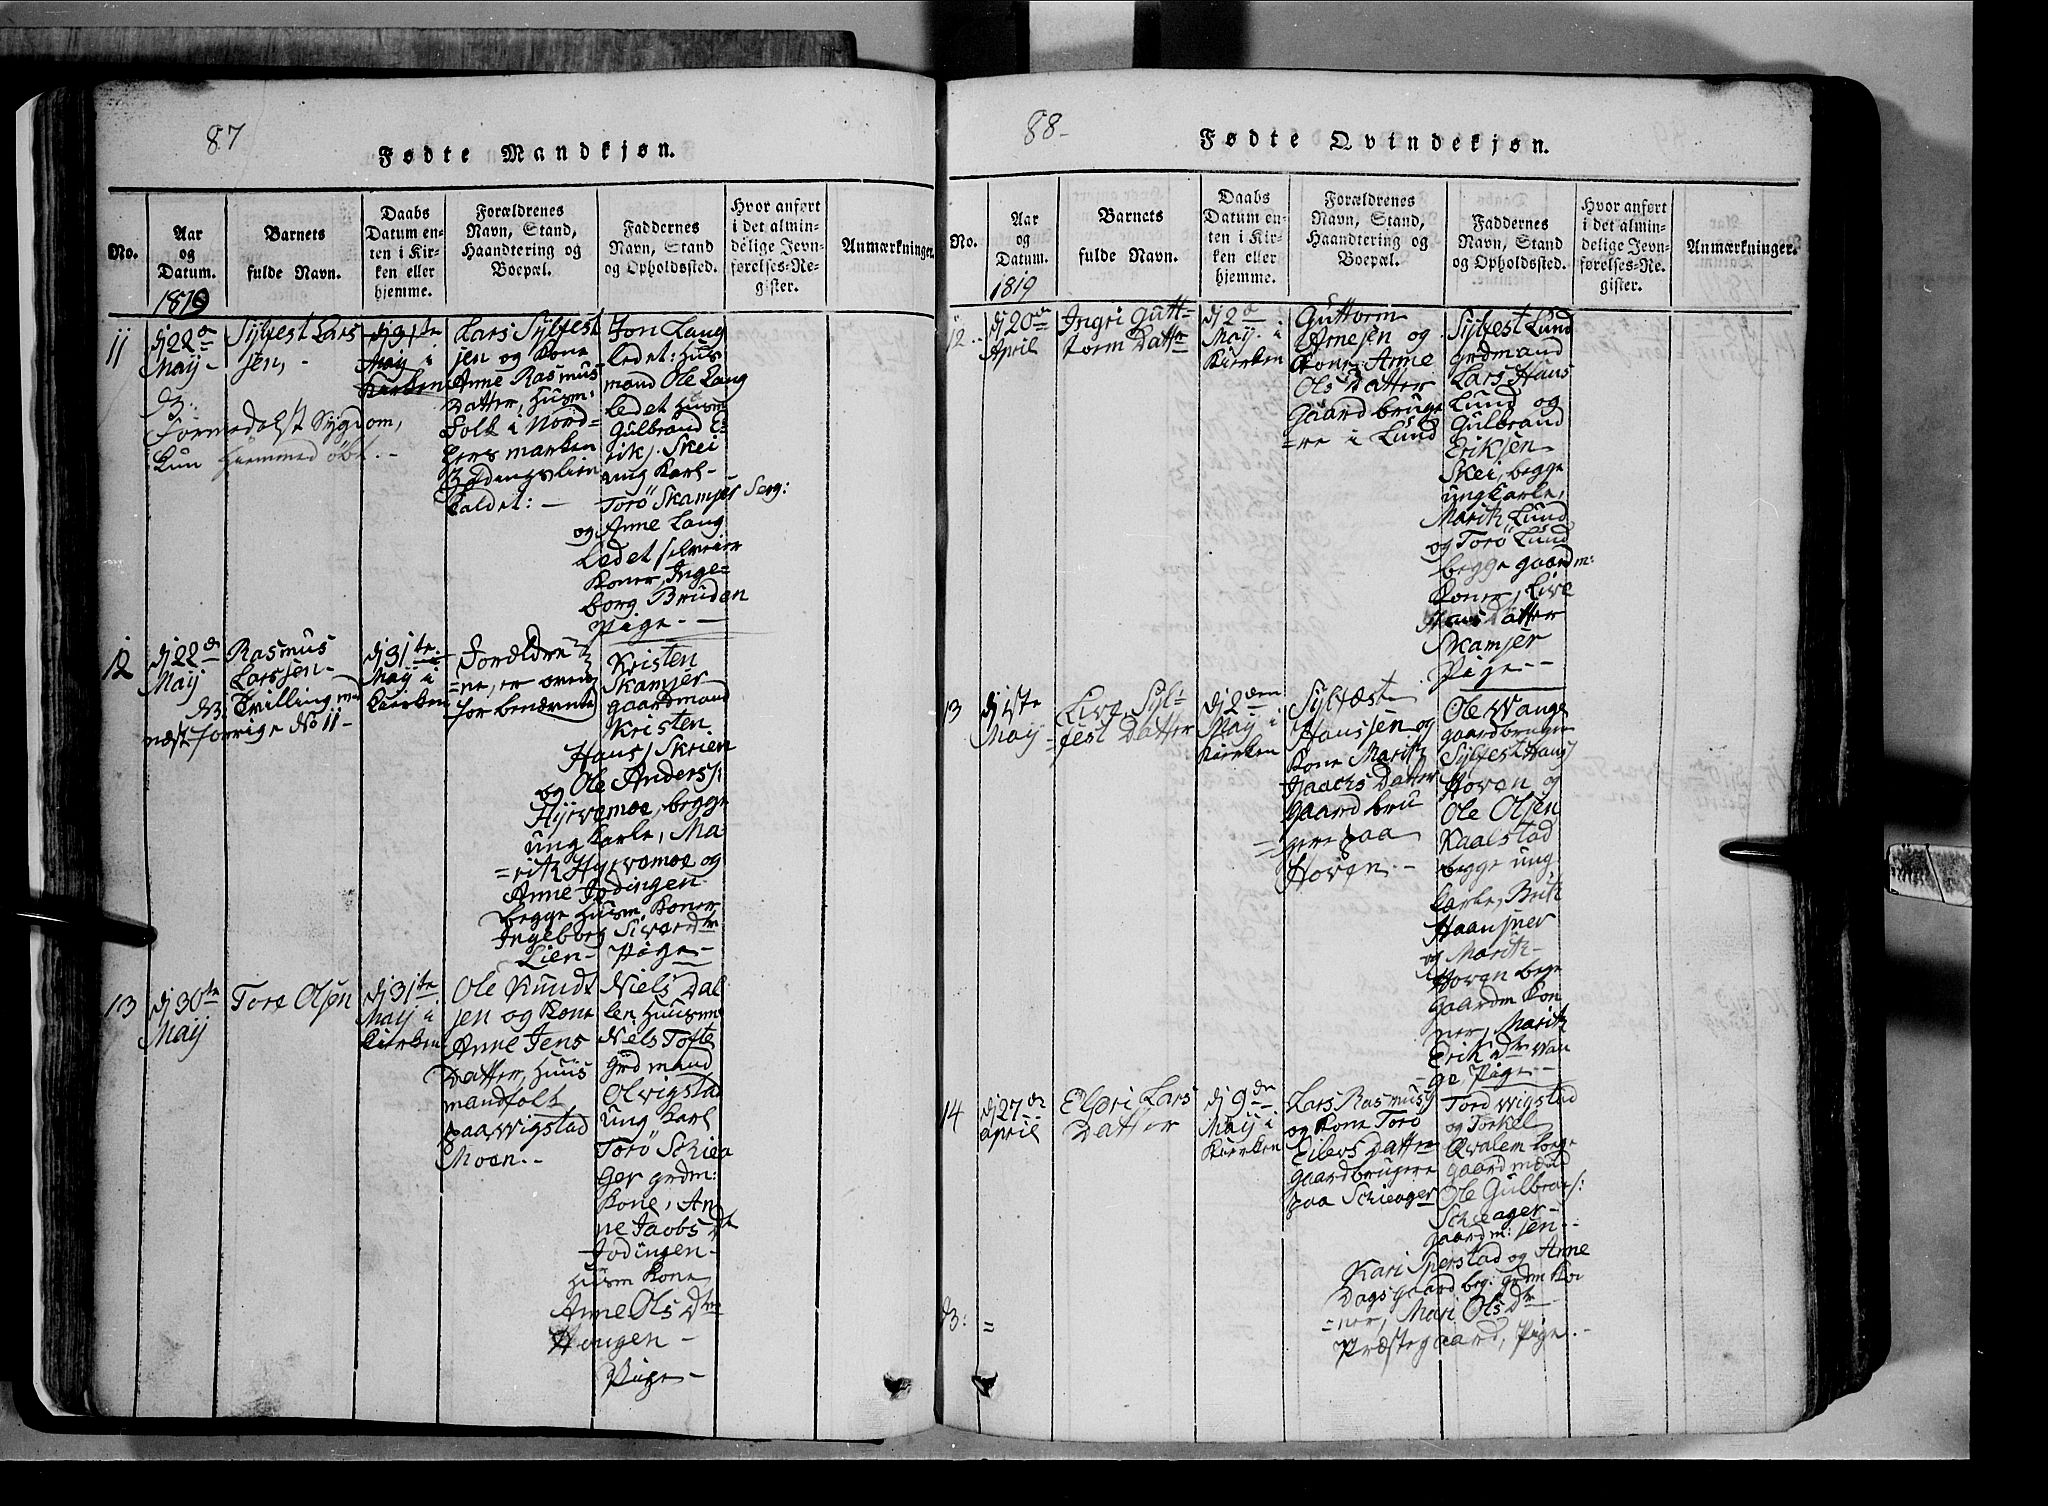 87
Fødte Mandkjøn.
No.
Aar
og
Datum.
Barnets
fulde Navn.
Daabs
Datum en-
ten i Kir-
ken eller
hjemme.
Forældrenes
Navn, Stand,
Haandtering og
Boepæl.
Faddernes
Navn, Stand
og Opholdssted.
Hvor anført
i det almin-
delige Jevn-
førelses-Re-
gister.
Anmærkninger.
1819
11
dj 22de
Maij
Sylfest Lars
sen,
dj 31te
Maij i
Kirken
Lars Sylfest
sen og Kone
Anne Rasmus
Datter, Husm:
Folk i Nord-
kaldet:
Jon Lang
ledet: Hus
mand Ole Lang
ledet Husm
Gulbrand E-
rikj. Skei
ung Karl
Torö Skamser Serg:
og Anne Lang
ledet
Koner, Inge-
borg Brudan
Pige
Formedelst Sygdom,
kun hiemmed öbt.
12
dj 22de
Maij
Rasmus
Larssen
Tvilling
næstforrige No 11
dj 31te
Maij i
Kierken
Forældre
ne, er oven
for benævnte
Kristen
Skamser
gaardmand
Kristen
Hansj Skrien
og Ole Andersj:
Hyrvemoe, begge
ung karle, Ma
rit Hyrvamoe og
Anne Jodingen
begge Husm. Koner
Ingeborg Sivardtr
Lien Pige
13
dj 30te
Maij
Tore Olsen
dj 31te
Maij i
Kierken
Ole Knudt
sen og Kone
Anne Jens
Datter, Huus
mandfolk
paa Wigstad
Moen.
Niels Dal
len Huusm
Niels Tofte
grdmand
Ol Wigstad
ung karl
Torö Schiea
ger grdm:
Kone, An
ne Jacobs Dr
Jodingen
Husm Kone
Anne Ols Dtr
Haugen
Pige
88
Fødte Qvindekjøn.
No.
Aar
og
Datum.
Barnets
fulde Navn.
Daabs
Datum en-
ten i Kir-
ken eller
hjemme.
Forældrenes
Navn, Stand,
Haandtering og
Boepæl.
Faddernes
Navn, Stand
og Opholdssted.
Hvor anført
i det almin-
delige Jevn-
førelses-Re-
gister.
Anmærkninger.
1819
12
dj 20de
April
Ingri Gutt-
torm Dattr
dj 2de
Maij i
Kierken
Guttorm
Arnesen og
Kone Anne
Ols Datter
Gaardbruge
re i Lund
Sylfest Lund
grdmand
Lars Hans
Lund og
Gulbrand
Eriksen
Skei, begge
ungkarle,
Marit Lund
og Torö Lund
begge gaardm:
Koner, Live
Hans Datter
Skamser
Pige
13
dj 1ste
Maij
Live Syl-
fest Datter
dj 2den
Maij i
Kierken
Sylfæst
Hanssen og
Kone Marit
Isachs Datter
gaardbru
gere paa
Hoven
Ole Wange
gaardbruger
Sylfest Hansj
Hoven og
Ole Olsen
Kaalstad
begge ung
karle, Brit
og Marit
Hoven begge
gaardm Ko
ner, Marit
Erik Dtr Wan
ge, Pige
14
dj 27de
April
Elsri Lars
Datter
dj 9de
Maij i
Kierken
Lars Rasmusj
og Kone Torö
Eilevs Datter
gaardbrugere
paa Schieager
Tord Wigstad
og Torkel
Qvalem begge
gaardmænd
Ole Gulbransj:
Schieager
gaardm: sen
Kari Sperstad og Anne
Dagsgaard beg: grdm Ko
ner, Mari Ols Dtr
Præstegaard, Pige.